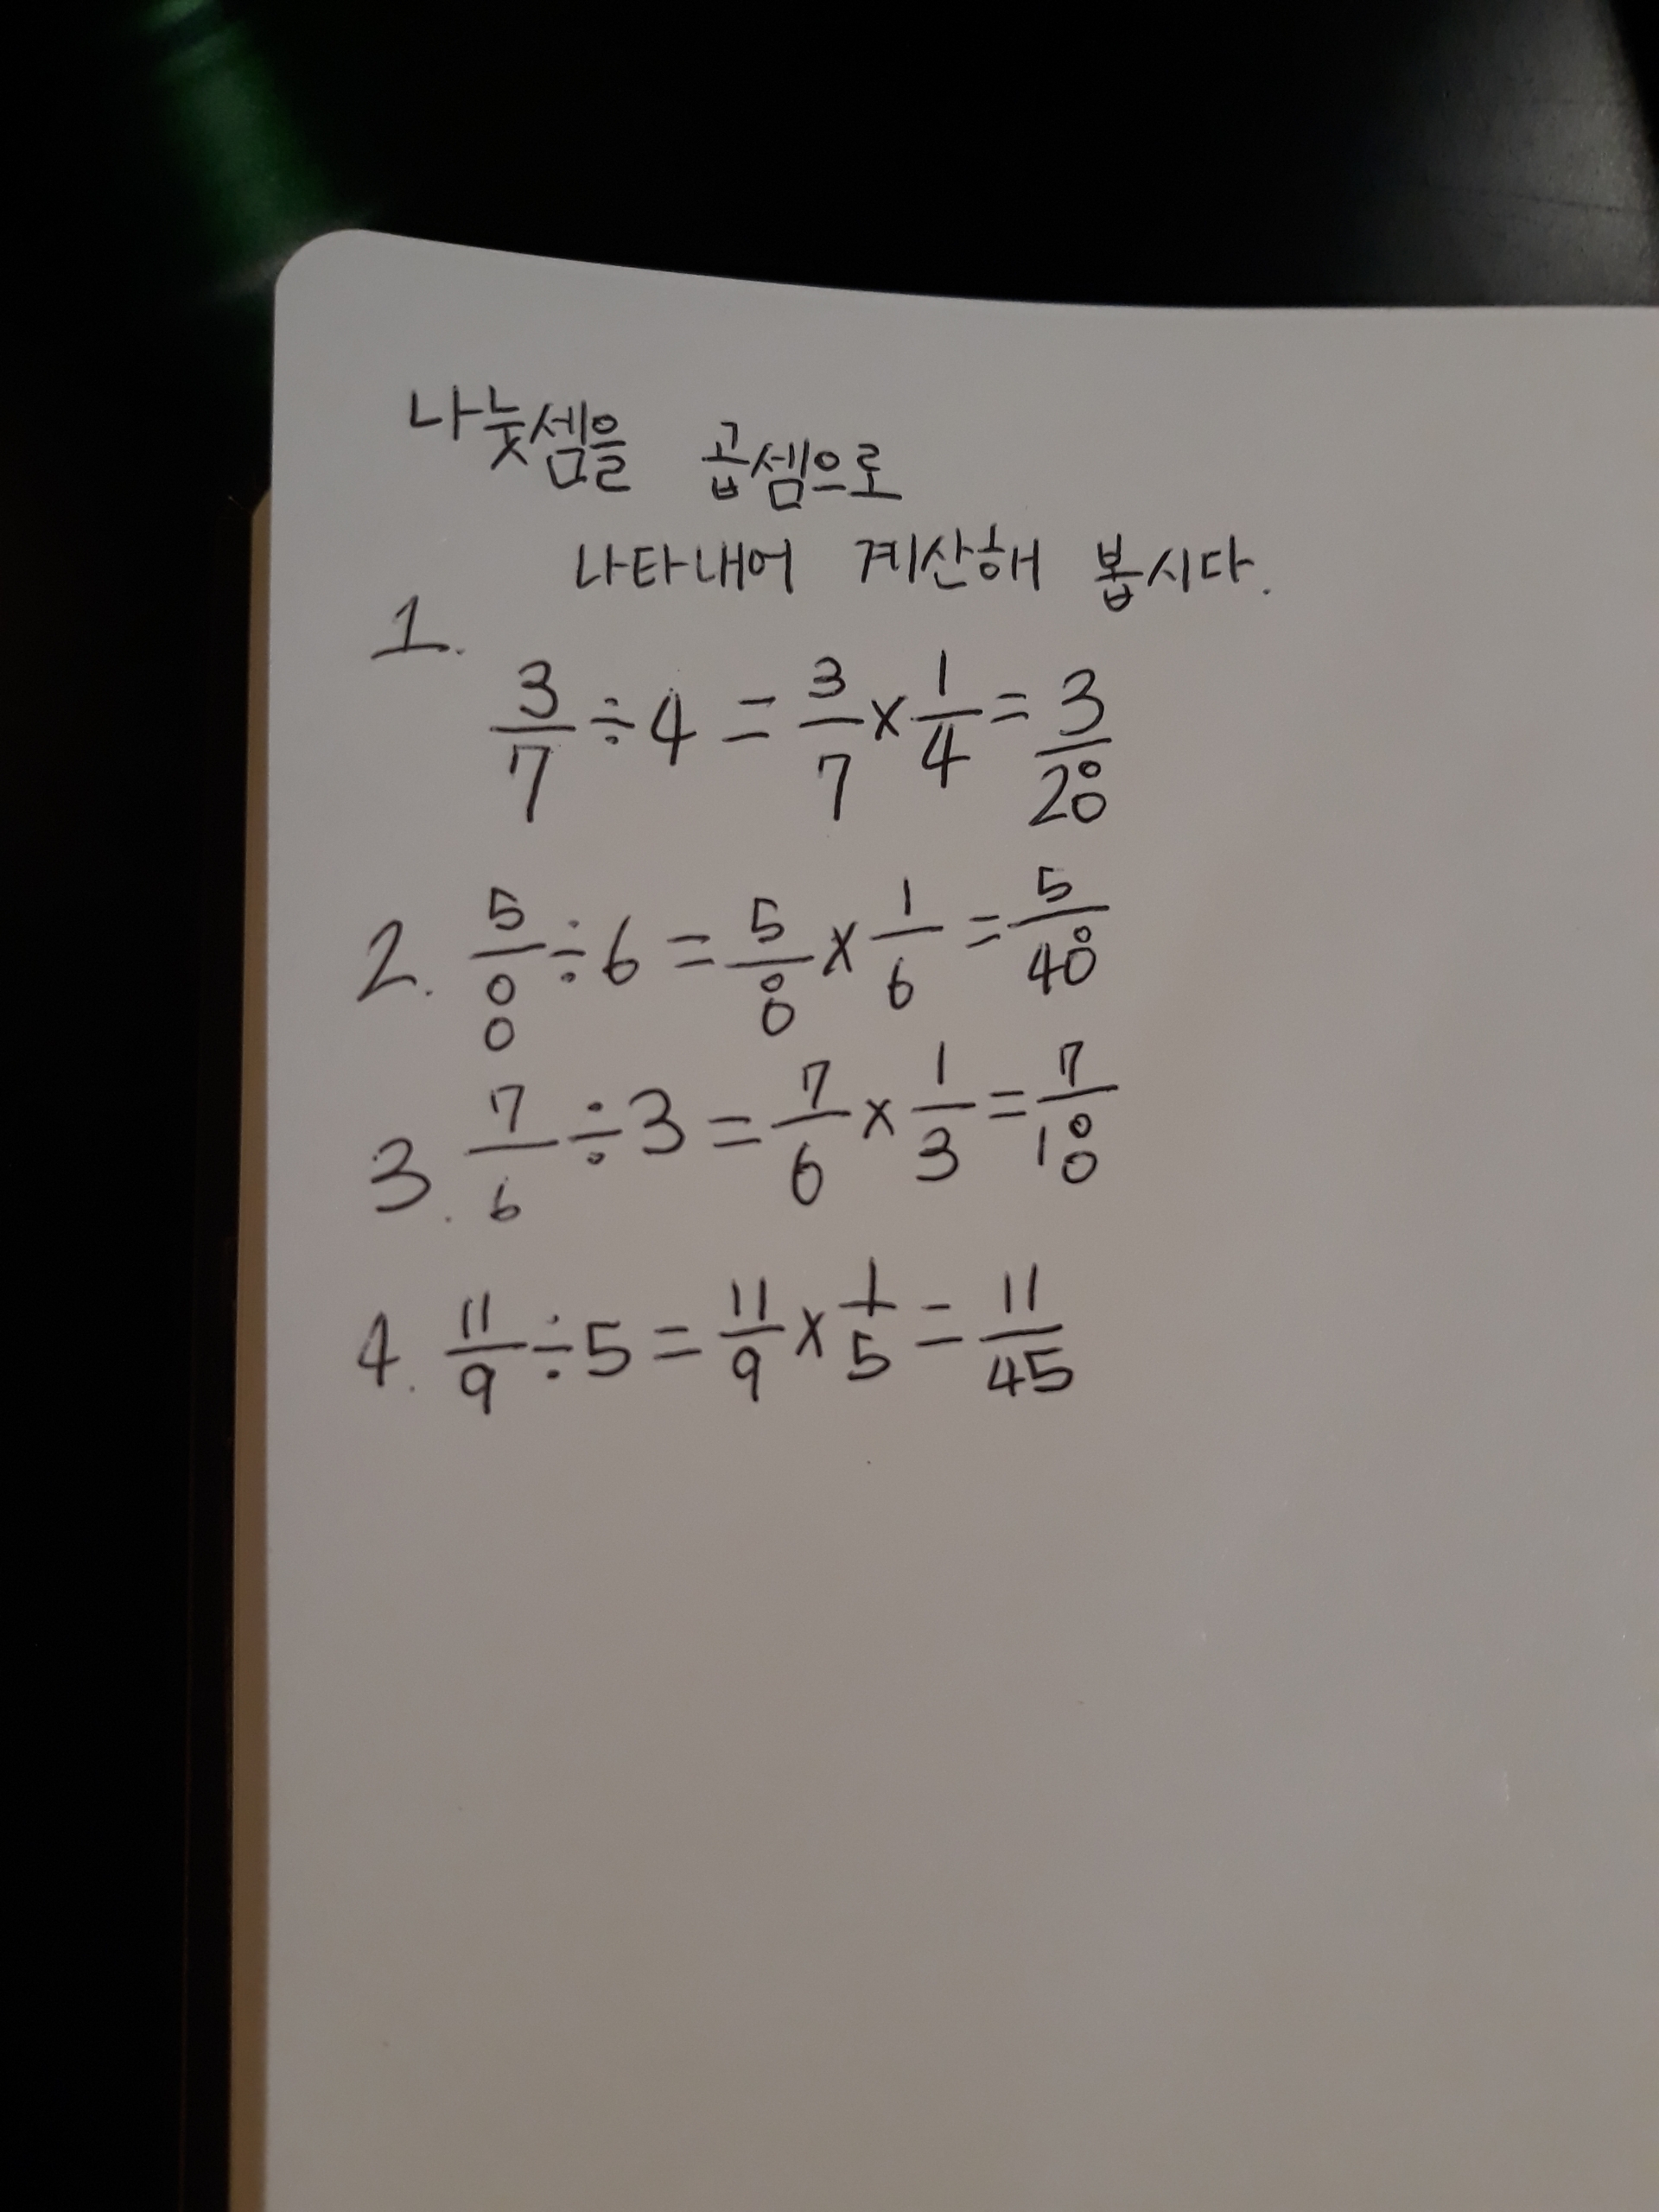 나눗셈을 곱셈으로
나타내어 계산해 봅시다.
1.
3/7 ÷ 4 = 3/7 × 1/4 = 3/28
2. 5/8 ÷ 6 = 5/8 × 1/6 = 5/48
3. 7/6 ÷ 3 = 7/6 × 1/3 = 7/18
4. 11/9 ÷ 5 = 11/9 × 1/5 = 11/45